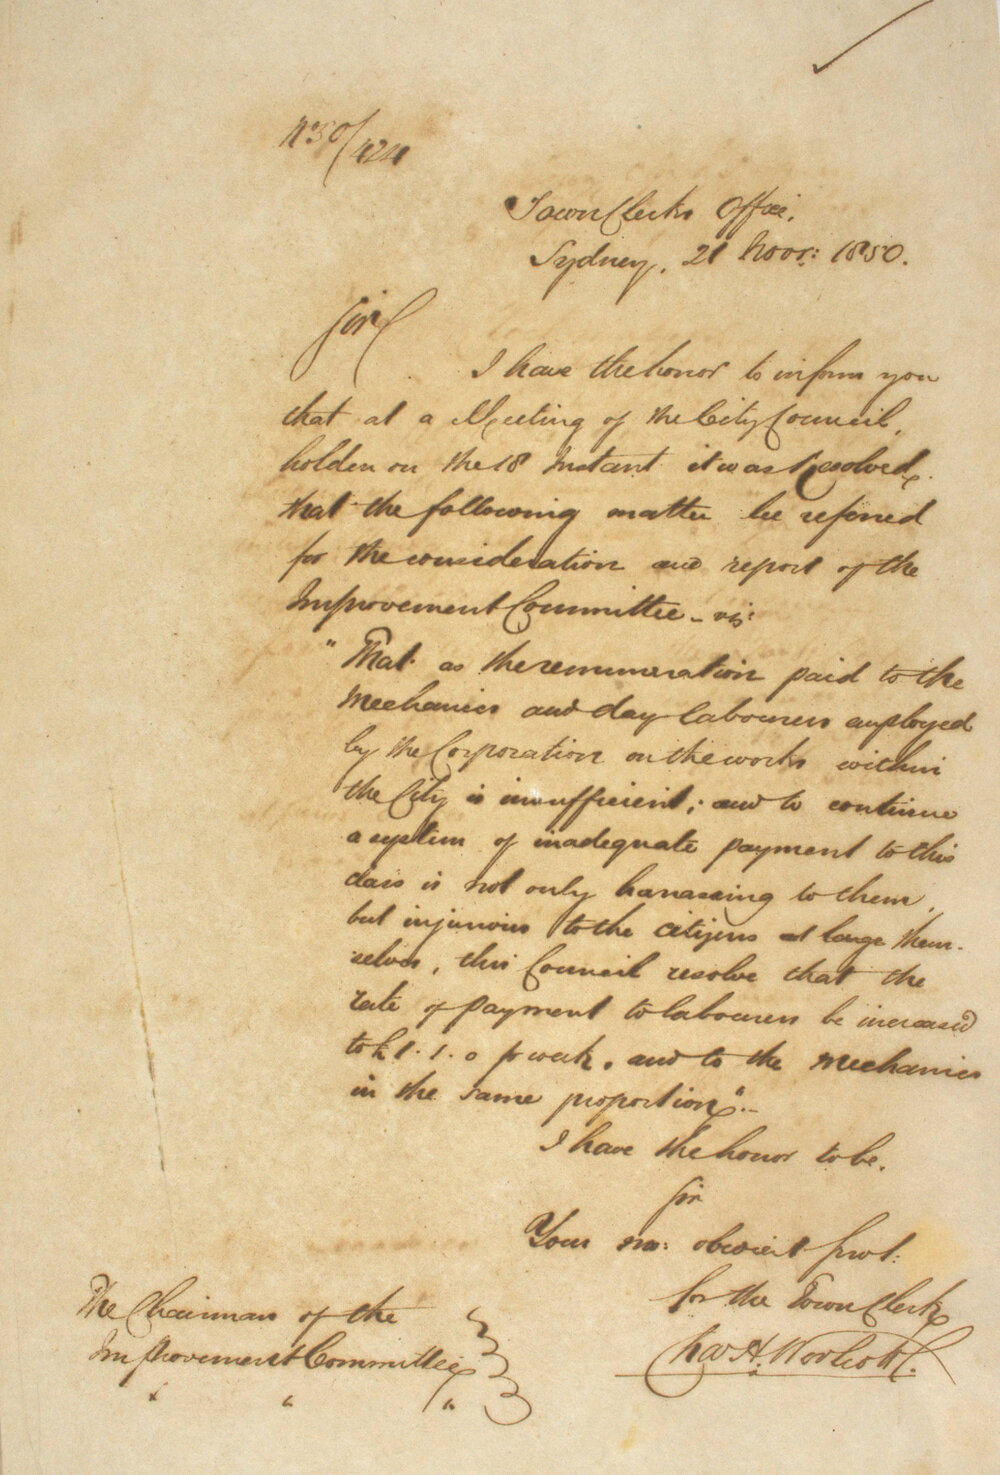 No 50/424
Town Clerks Office,
Sydney, 21 Novr: 1850.
Sir
I have the honor to inform you
that at a Meeting of the City Council,
holden on the 18 Instant it was Resolved,
that the following matter be referred
for the consideration and report of the
Improvement Committee - viz:
"That as the remuneration paid to the
Mechanics and day labourers employed
by the Corporation on the works within
the City is insufficient; and to continue
a system of inadequate payment to this
class is not only harassing to them,
but injurious to the citizens at large them-
selves, this Council resolve that the
rate of payment to labourers be increased
to £1.1.0 pr week, and to the Mechanics
in the same proportion".-
I have the honor to be,
Sir
Your mo: obedient servt:
for the Town Clerk
Chas H. Woolcott
The Chairman of the
Improvement Committee
" " "